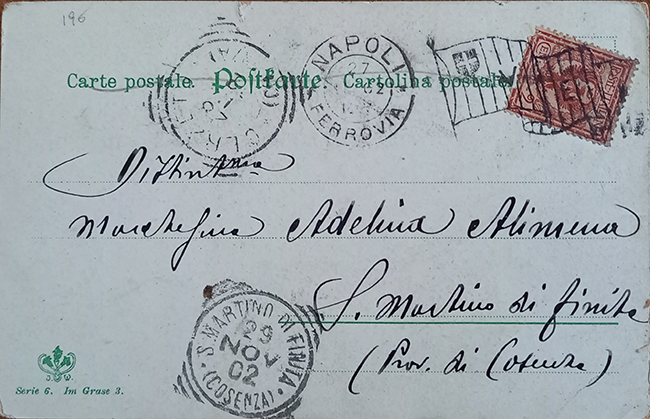 196
Carte postale. Postkarte. Cartolina postale.
NAPOLI
27
FERROVIA
Distintma
Marchesina Adelina Alimena
S. Martino di Finita
(Prov. di Cosenza)
S. MARTINO DI FINITA
29
NOV
02
(COSENZA)
Serie 6. Im Grase 3.